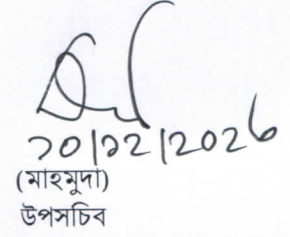 ১০/১২/২০২৫
(মাহমুদা)
উপসচিব